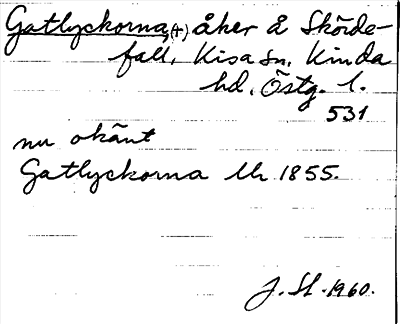 Gatlyckorna, (+) åker å Skörde-
fall, Kisa sn, Kinda
hd, Östg. l.
531
nu okänt
Gatlyckorna Uh 1855.
J. Sl. 1960.